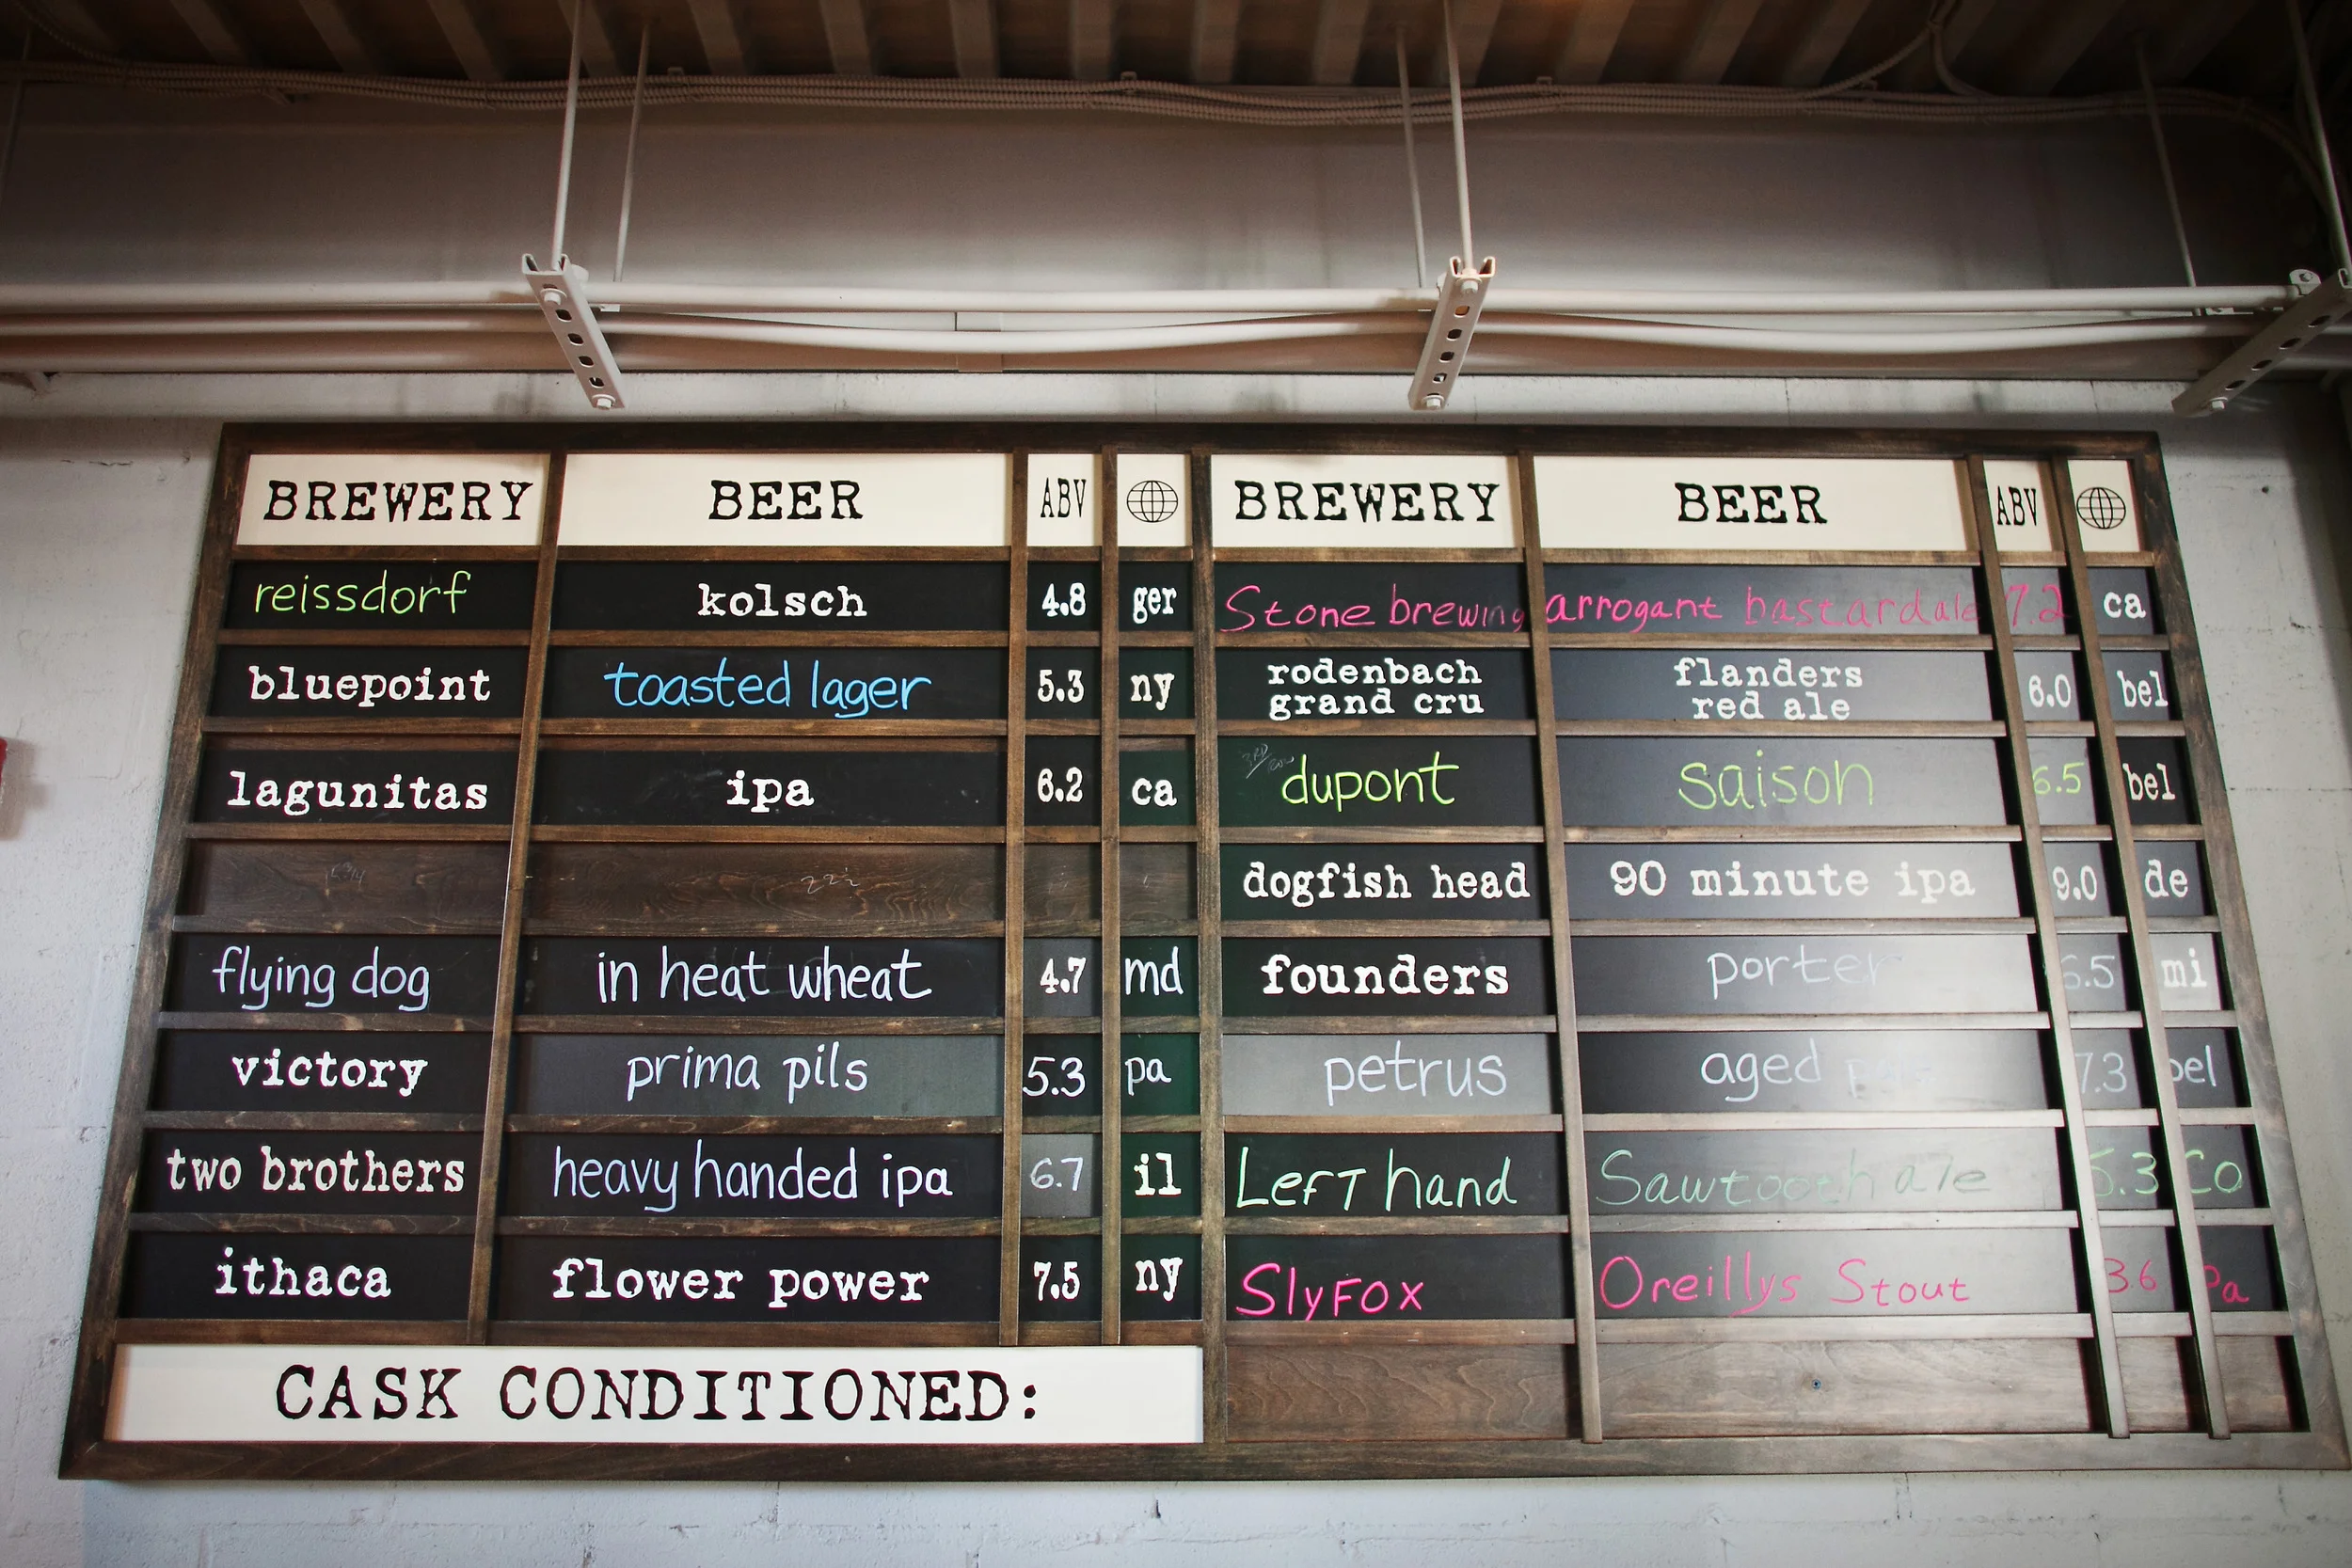 BREWERY BEER ABV
reissdorf kolsch 4.8 ger
bluepoint toasted lager 5.3 ny
lagunitas ipa 6.2 ca
flying dog in heat wheat 4.7 md
victory prima pils 5.3 pa
two brothers heavy handed ipa 6.7 il
ithaca flower power 7.5 ny
CASK CONDITIONED:
BREWERY BEER ABV
Stone brewing arrogant bastard ale 7.2 ca
rodenbach
grand cru
flanders
red ale
6.0 bel
dupont saison 6.5 bel
dogfish head 90 minute ipa 9.0 de
founders porter 6.5 mi
petrus aged 7.3 bel
Left hand Sawtooth ale 5.3 Co
SlyFox Oreillys Stout 3.6 Pa